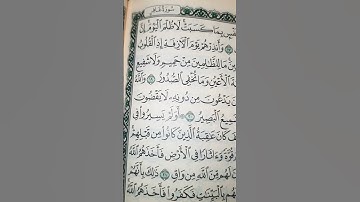 سورة غافر
بِمَا كَسَبَتْ لَا ظُلْمَ الْيَوْمَ إِنَّ
وَأَنذِرْهُمْ يَوْمَ الْآزِفَةِ إِذِ الْقُلُوبُ
مَا لِلظَّالِمِينَ مِنْ حَمِيمٍ وَلَا شَفِيعٍ
الْأَعْيُنِ وَمَا تُخْفِي الصُّدُورُ ١٩ وَاللَّهُ
يَدْعُونَ مِن دُونِهِ لَا يَقْضُونَ
الْبَصِيرُ ٢٠ أَوَلَمْ يَسِيرُوا فِي
كَانَ عَاقِبَةُ الَّذِينَ كَانُوا مِن قَبْلِهِمْ
قُوَّةً وَءَاثَارًا فِي الْأَرْضِ فَأَخَذَهُمُ اللَّهُ
مِّنَ اللَّهِ مِن وَاقٍ ٢١ ذَٰلِكَ بِأَنَّهُمْ
بِالْبَيِّنَاتِ فَكَفَرُوا فَأَخَذَهُمُ اللَّهُ